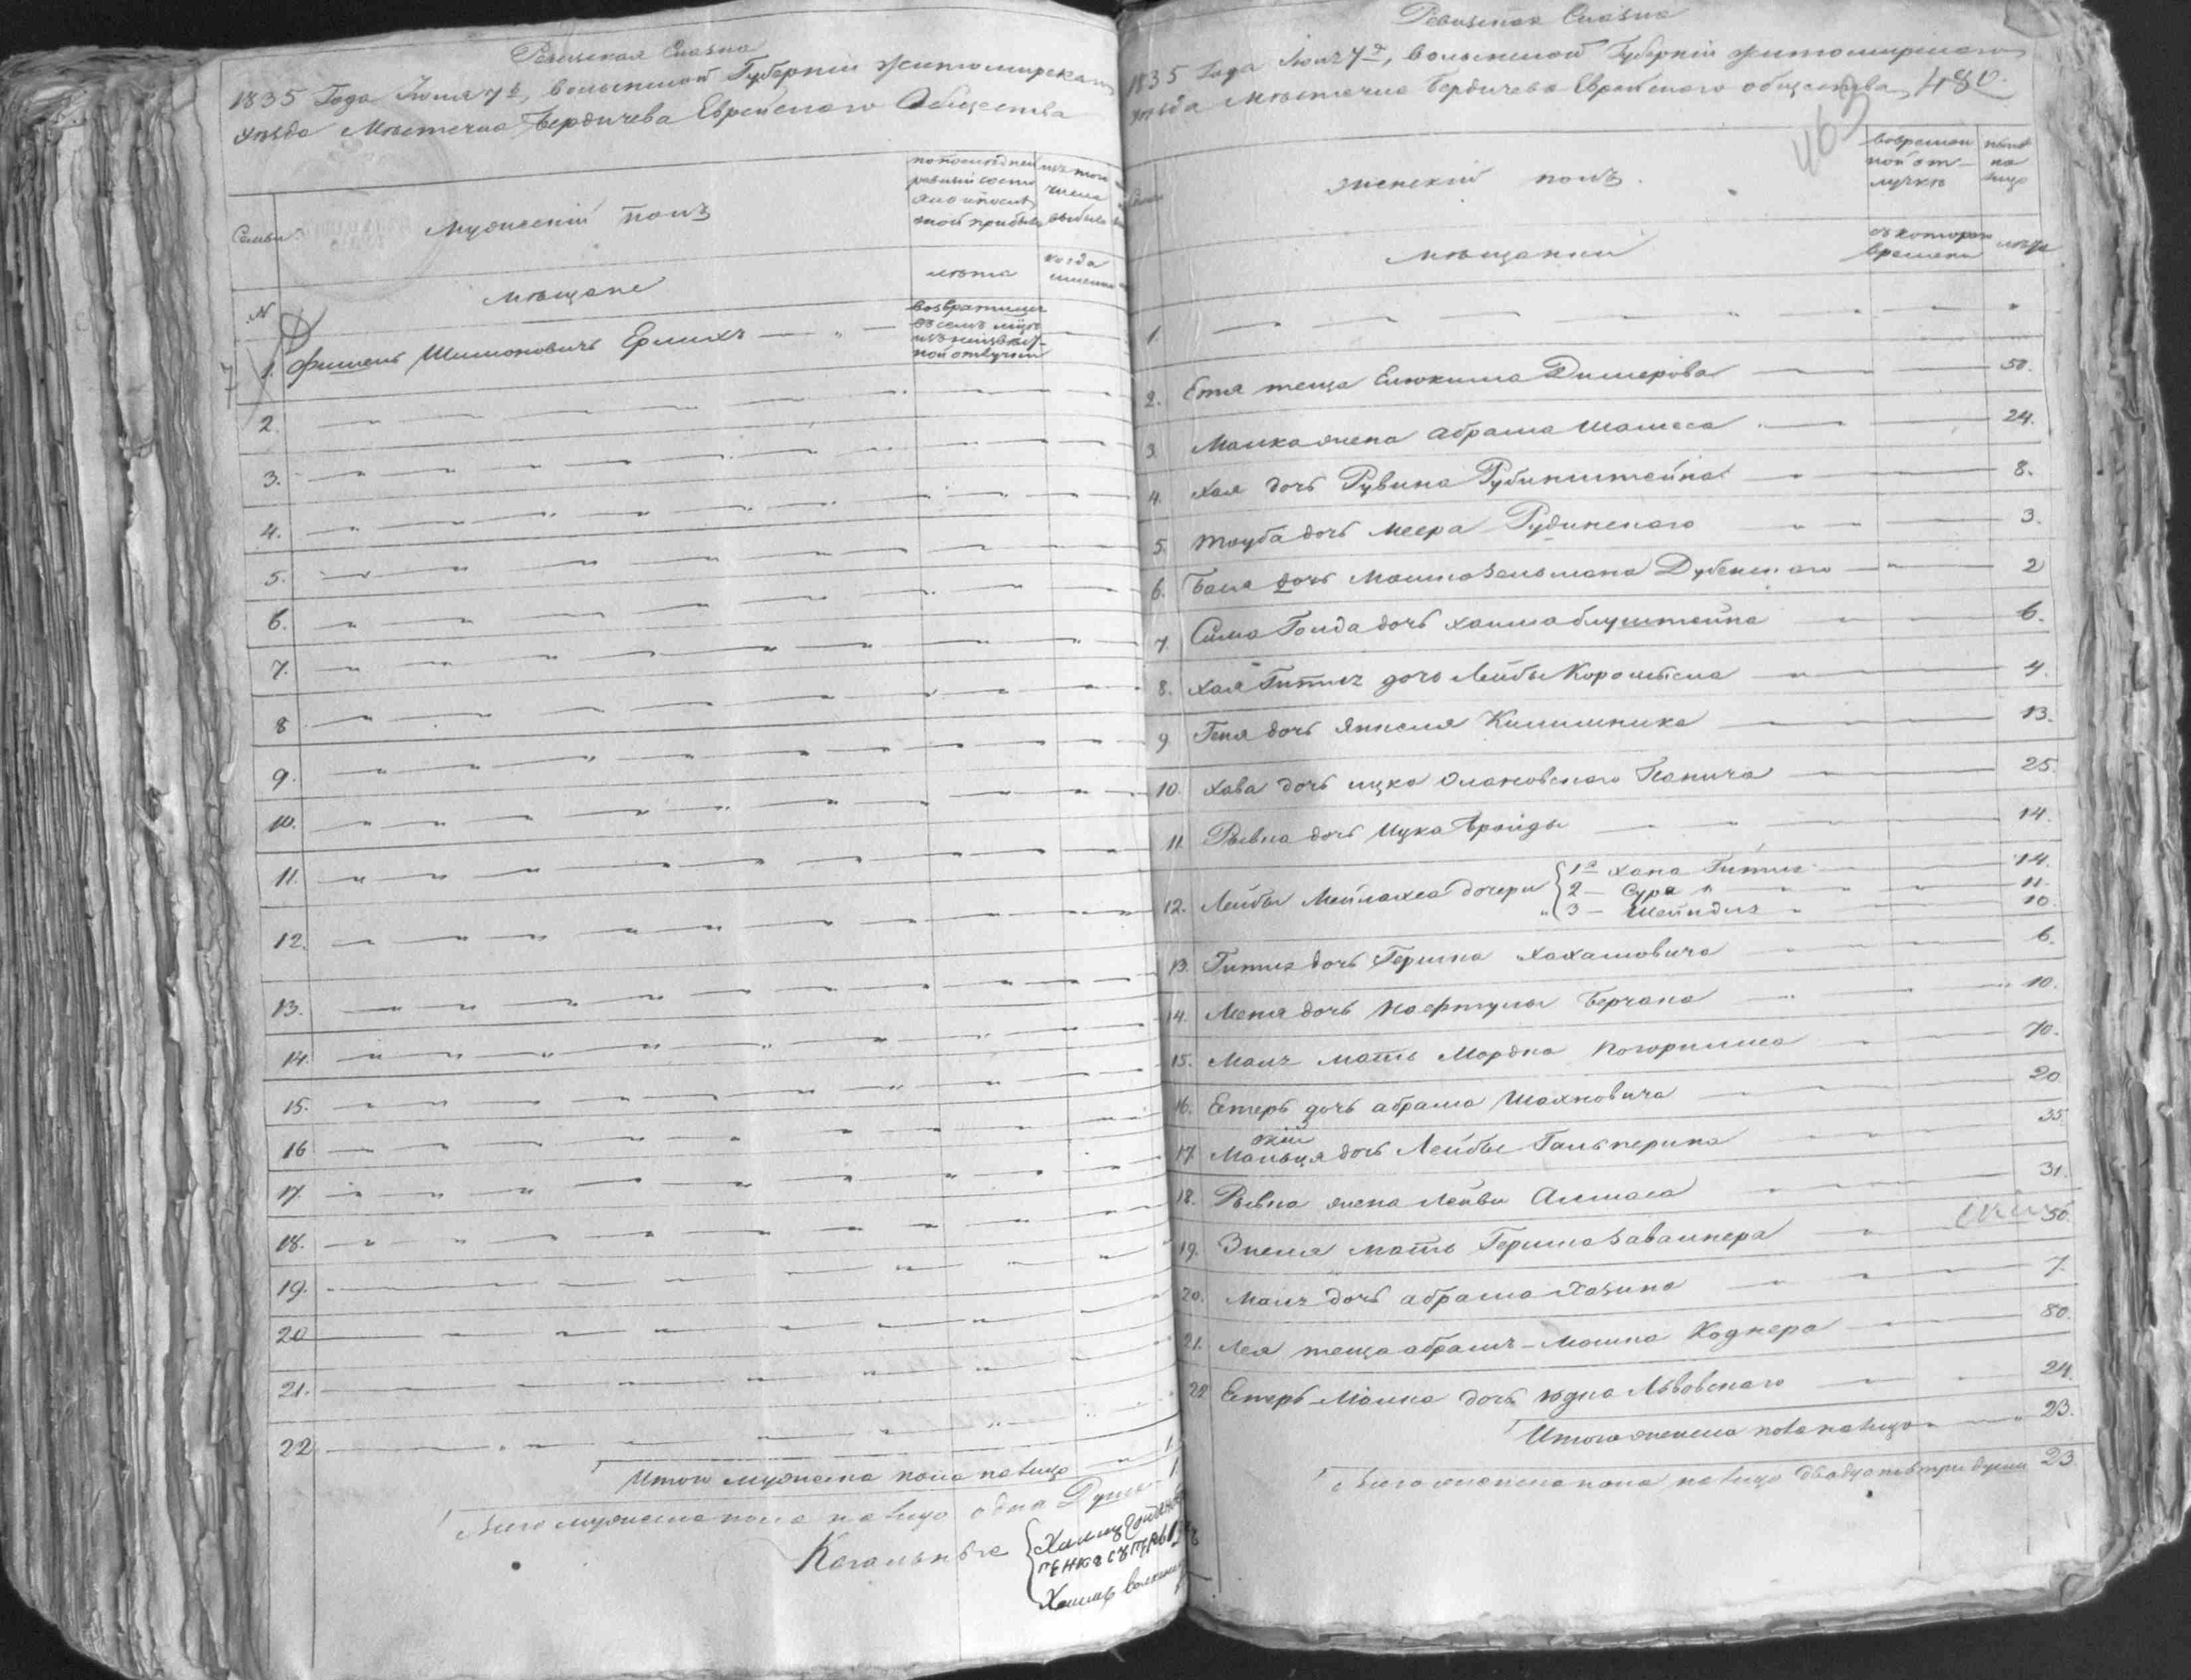 Ревизская Сказка
1835 Года Июня 7 д, Волынской Губернии Житомирскаго
уезда Местечка Бердичева Еврейскаго Общества
Семьи
Мужеский полъ
по последней
ревизии состо
яло и после
оной прибыло
изъ того
числа
выбыло
лета
когда
именно
№
мещане
1. Фишель Шимоновичъ Ермихъ
возвратился
ной отлучки
2.
3.
4.
5.
6.
7.
8
9.
10.
11.
12.
13.
14.
15.
16
17.
18.
19.
20
21.
22
Итого мужеска пола на лицо 1.
Всего мужеска пола на лицо одна Душа 1.
Кагальные
Ревизская Сказка
1835 Года Июня 7 д, Волынской Губернии Житомирскаго
уезда Местечка Бердичева Еврейскаго общества 480.
463
женский полъ
во времен
ной от-
лучке
ныне
на
лицо
мещанки
съ котораго
времени
лета
1.
2. Етя теща Елюкима Димерова 50.
3. Малка жена Абрама Шамеса 24.
4. Хая дочь Рувина Рубинштейна 8.
5. Тауба дочь Меера Рудинскаго 3.
6. Баля дочь Мошка Зельмана Дубенскаго 2
7. Сима Голда дочь Хаима Блуштейна 6.
8. Хая Гитль дочь Лейбы Коромысла 4.
9. Геня дочь Янкеля Килимника 13.
10. Хава дочь Ицка 25.
11. Ривка дочь Ицка Бройды 14.
12. Лейбы Мейлаха дочери
1я Хана Гитля 14.
2 - Сура 11.
3 - Шейндля 10.
13. Гитля дочь Гершка Хахамовича 6.
14. Леня дочь Нафтулы Берчана 10.
15. Маля мать Мордка Погорилиса 70.
16. Естеръ дочь Абрама Шахновича 20
17. Мальця дочь Лейбы Гальперина 35.
18. Ривка жена Лейви Алмаса 31.
19. Энеля мать Герша Завалнера 50.
20. Маля дочь Абрама Хазина 7.
21. Лея теща Абрамъ-Мошка Коднера 80.
22 Естеръ-Малка дочь Юдка Львовскаго 24.
Итого женска пола на лицо 23.
Всего женска пола на лицо двадцать три души 23